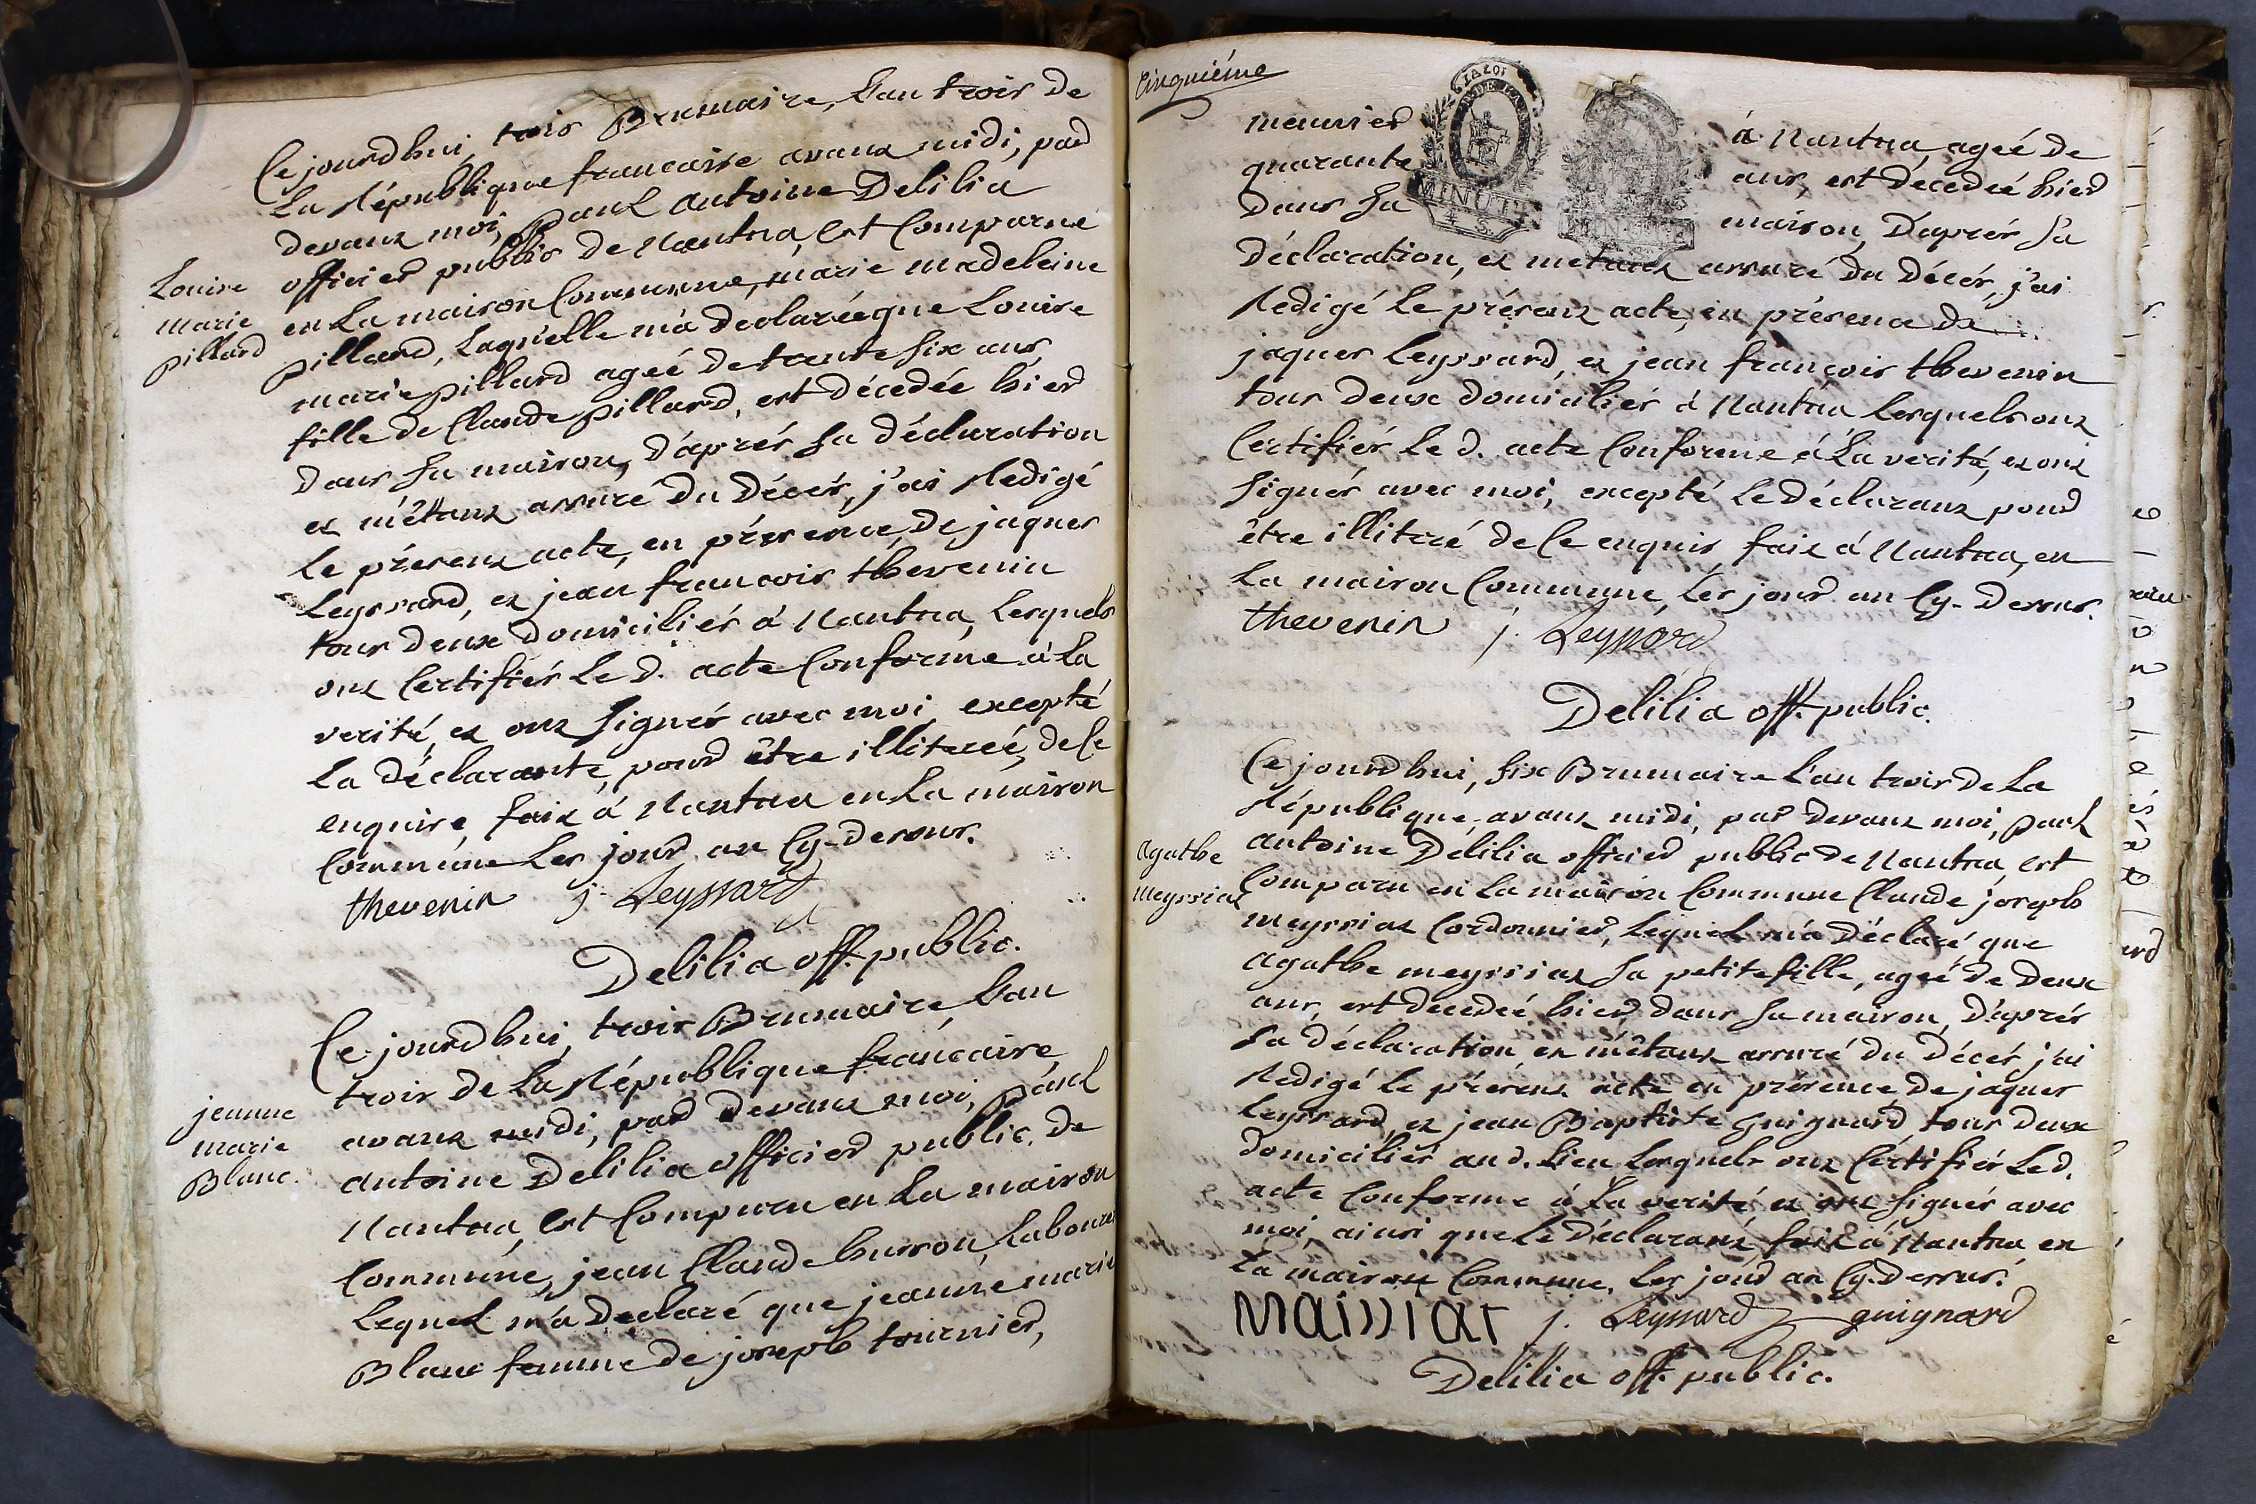 Ce jourdhui trois Brumaire, L'an trois de
La République francaise avant midi, par
devant moi, Paul antoine Delilia
officier public de Nantua, est Comparue
Louise
Marie
pillard
en La maison Commune, marie madeleine
pillard, Laquelle m'a declarée que Louise
marie pillard ageé de trente six ans
fille de Claude pillard, est décedée hier
dans sa maison, D'aprés sa déclaration
et m'étant assuré du Décés, j'ai Redigé
Le présent acte, en présence de jaques
Leyssard, et jean francois thevenin
tous deux domiciliés á Nantua, Lesquels
ont Certifiés Le d. acte Conforme á La
verité, et ont signés avec moi excepté
La déclarante, pour être illiterée, de Ce
enquise, fait á Nantua en La maison
Commune Les jour an Cy-dessus.
thevenin j. Leyssard
Delilia off. public.
Ce jourdhui, trois Brumaire, L'an
trois de La République francaise,
jeanne
marie
Blanc.
avant midi, par devant moi, paul
antoine Delilia officier public de
Nantua, est Comparu en La maison
Commune, jean Claude husson, Laboure
Lequel m'a Declaré que jeanne marie
Blanc femme de joseph tournier,
Cinquiéme
meunier á Nantua, ageé de
quarante ans, est décedeé hier
Dans sa maison, D'aprés sa
MINUTE
4 S.
Déclaration, et m'etant assuré du Décés, j'ai
Redigé Le présent acte, en présence de
jaques Leyssard, et jean francois thevenin
tous deux Domiciliés á Nantua Lesquels ont
Certifiés Le d. acte Conforme á La verité, et ont
signés avec moi, excepté Le Déclarant pour
être illitéré de Ce enquis fait á Nantua, en
La maison Commune, Les jour an Cy-Dessus.
thevenin j. Leyssard
Delilia off. public.
Ce jourdhui, six Brumaire L'an trois de La
République, avant midi, par devant moi, paul
Agathe
Meyssiat
antoine Délilia officier public de Nantua, est
Comparu en La maison Commune Claude joseph
meyssiat Cordonnier, Lequel m'a Déclaré que
agathe meyssiat sa petite fille, ageé de deux
ans, est decedeé hier, dans sa maison, D'aprés
sa déclaration et m'étant assuré du Décés j'ai
Redigé Le présent acte en présence, de jaques
Leyssard, et jean Baptiste Guignard tous deux
domiciliés aud. Lieu Lesquels ont Certifiés Le d.
acte Conforme á La verité et ont signés avec
moi, ainsi que Le Déclarant, fait á Nantua en
La maison Commune, Les jour an Cy-Dessus.
Maissiat j. Leyssard guignard
Delilia off. public.